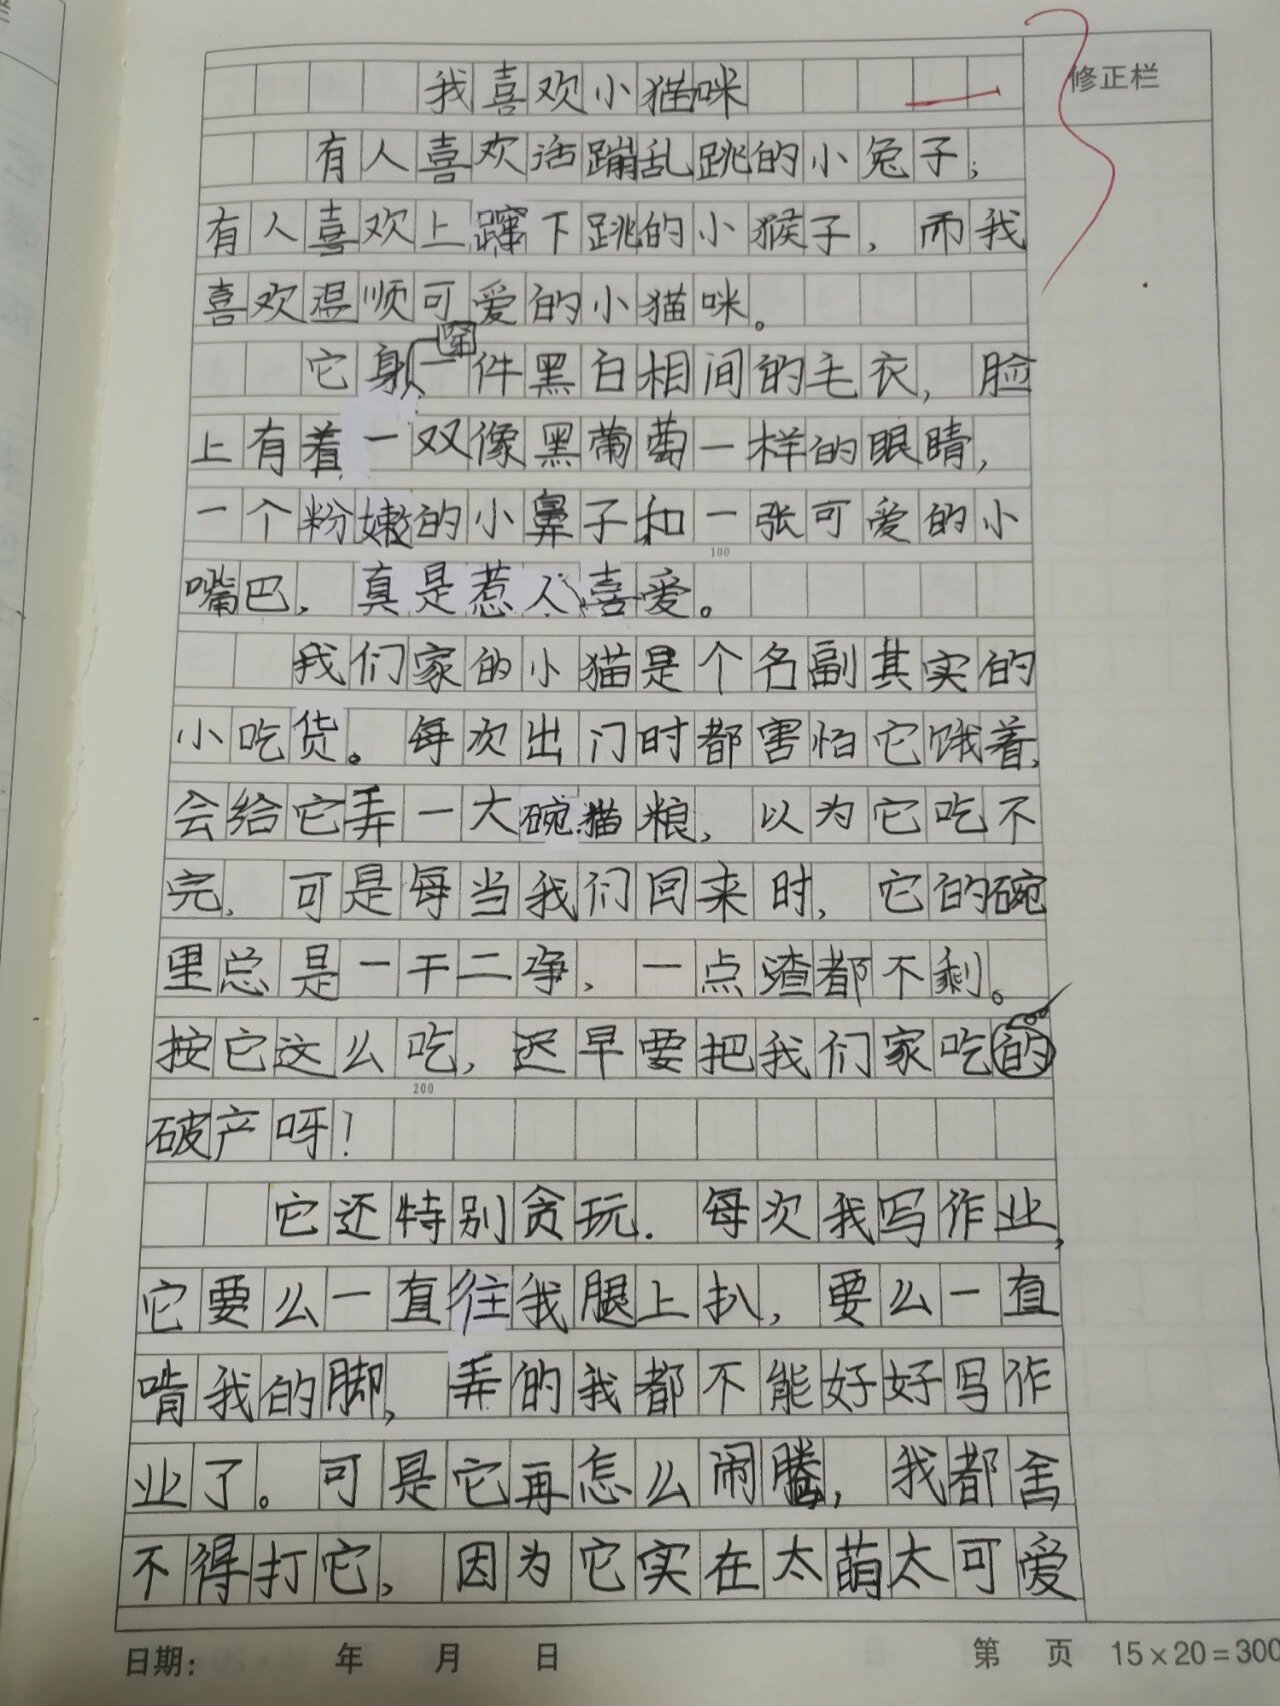 我喜欢小猫咪
修正栏
有人喜欢活蹦乱跳的小兔子；
有人喜欢上蹿下跳的小猴子，而我
喜欢温顺可爱的小猫咪。
它身穿一件黑白相间的毛衣，脸
上有着一双像黑葡萄一样的眼睛，
一个粉嫩的小鼻子和一张可爱的小
100
嘴巴，真是惹人喜爱。
我们家的小猫是个名副其实的
小吃货。每次出门时都害怕它饿着，
会给它弄一大碗猫粮，以为它吃不
完，可是每当我们回来时，它的碗
里总是一干二净，一点渣都不剩。
按它这么吃，迟早要把我们家吃的
200
破产呀！
它还特别贪玩．每次我写作业，
它要么一直往我腿上扒，要么一直
啃我的脚，弄的我都不能好好写作
业了。可是它再怎么闹腾，我都舍
不得打它，因为它实在太萌太可爱
日期： 年 月 日 第 页 15×20=300